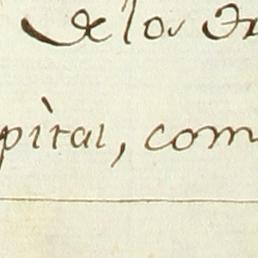 De los
pital, com